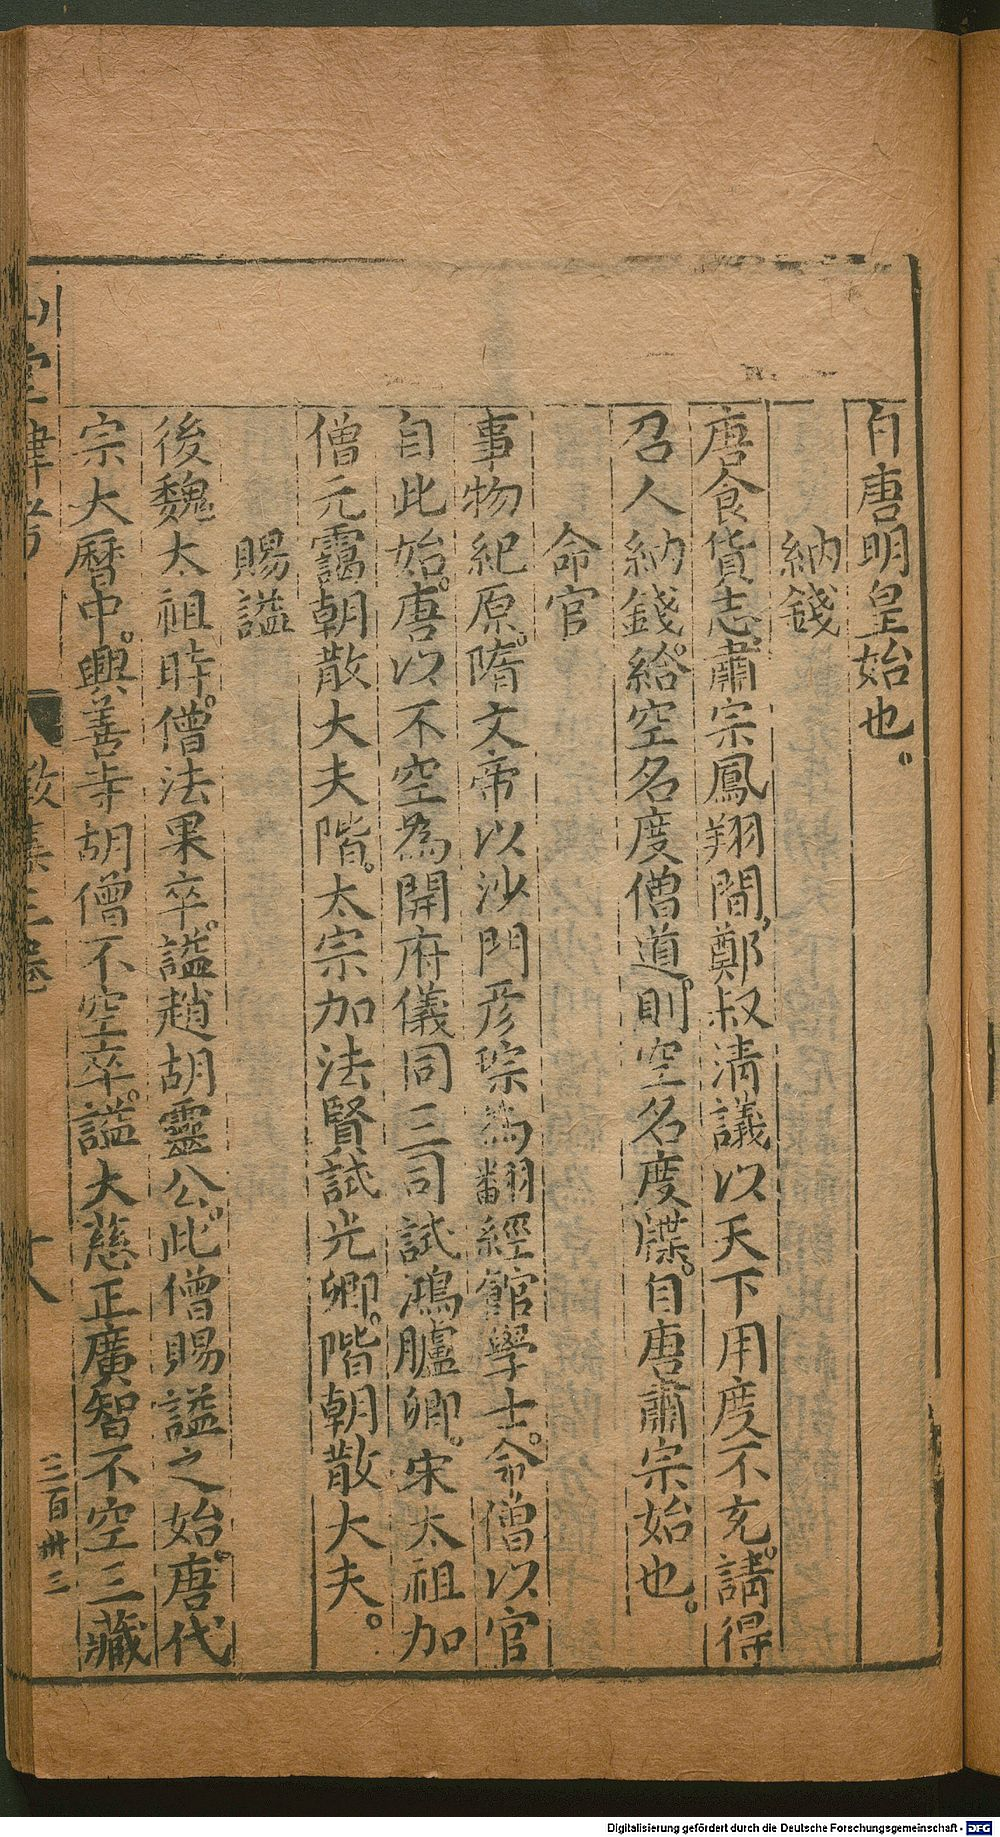 自唐明皇始也。
納錢
唐食貨志肅宗鳳翔間,鄭叔清議以天下用度不充。請得
召人納錢。給空名度僧道。則空名度牒。自唐肅宗始也。
命官
事物紀原。隋文帝以沙門彦琮為翻經館學士。命僧以官
自此始。唐以不空為開府儀同三司試鴻臚卿。宋太祖加
僧元靄朝散大夫階。太宗加法賢試光卿。階朝散大夫。
賜謚
後魏太祖時。僧法果卒。謚趙胡靈公。此僧賜謚之始。唐代
宗大曆中。興善寺胡僧不空卒。謚大慈正廣智不空三藏
山堂肆考
三百卅三
Digitalisierung gefördert durch die Deutsche Forschungsgemeinschaft - DFG